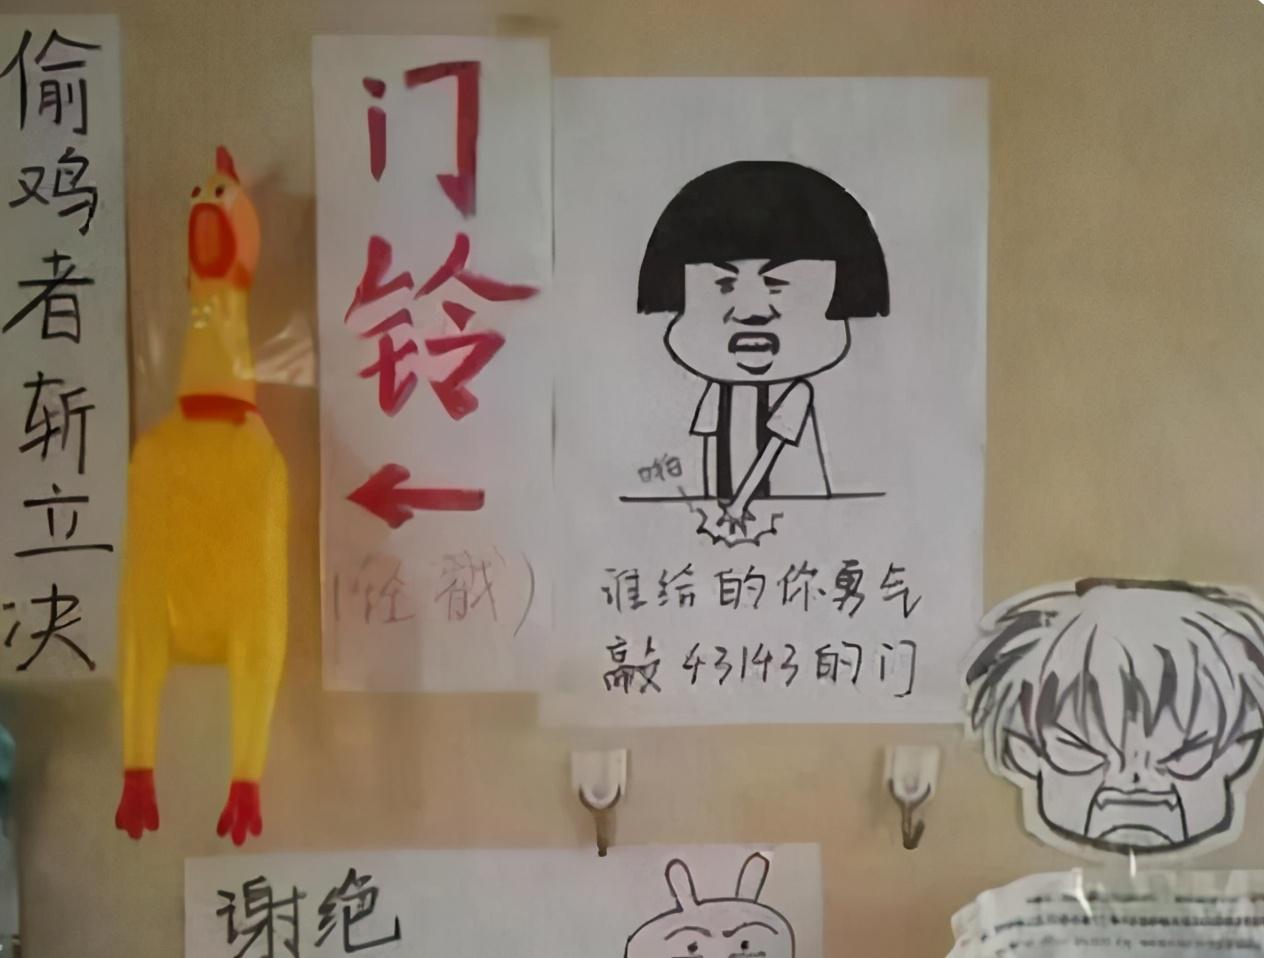 偷鸡者斩立决
门铃
(轻戳)
啪
谁给的你勇气
敲43143的门
谢绝